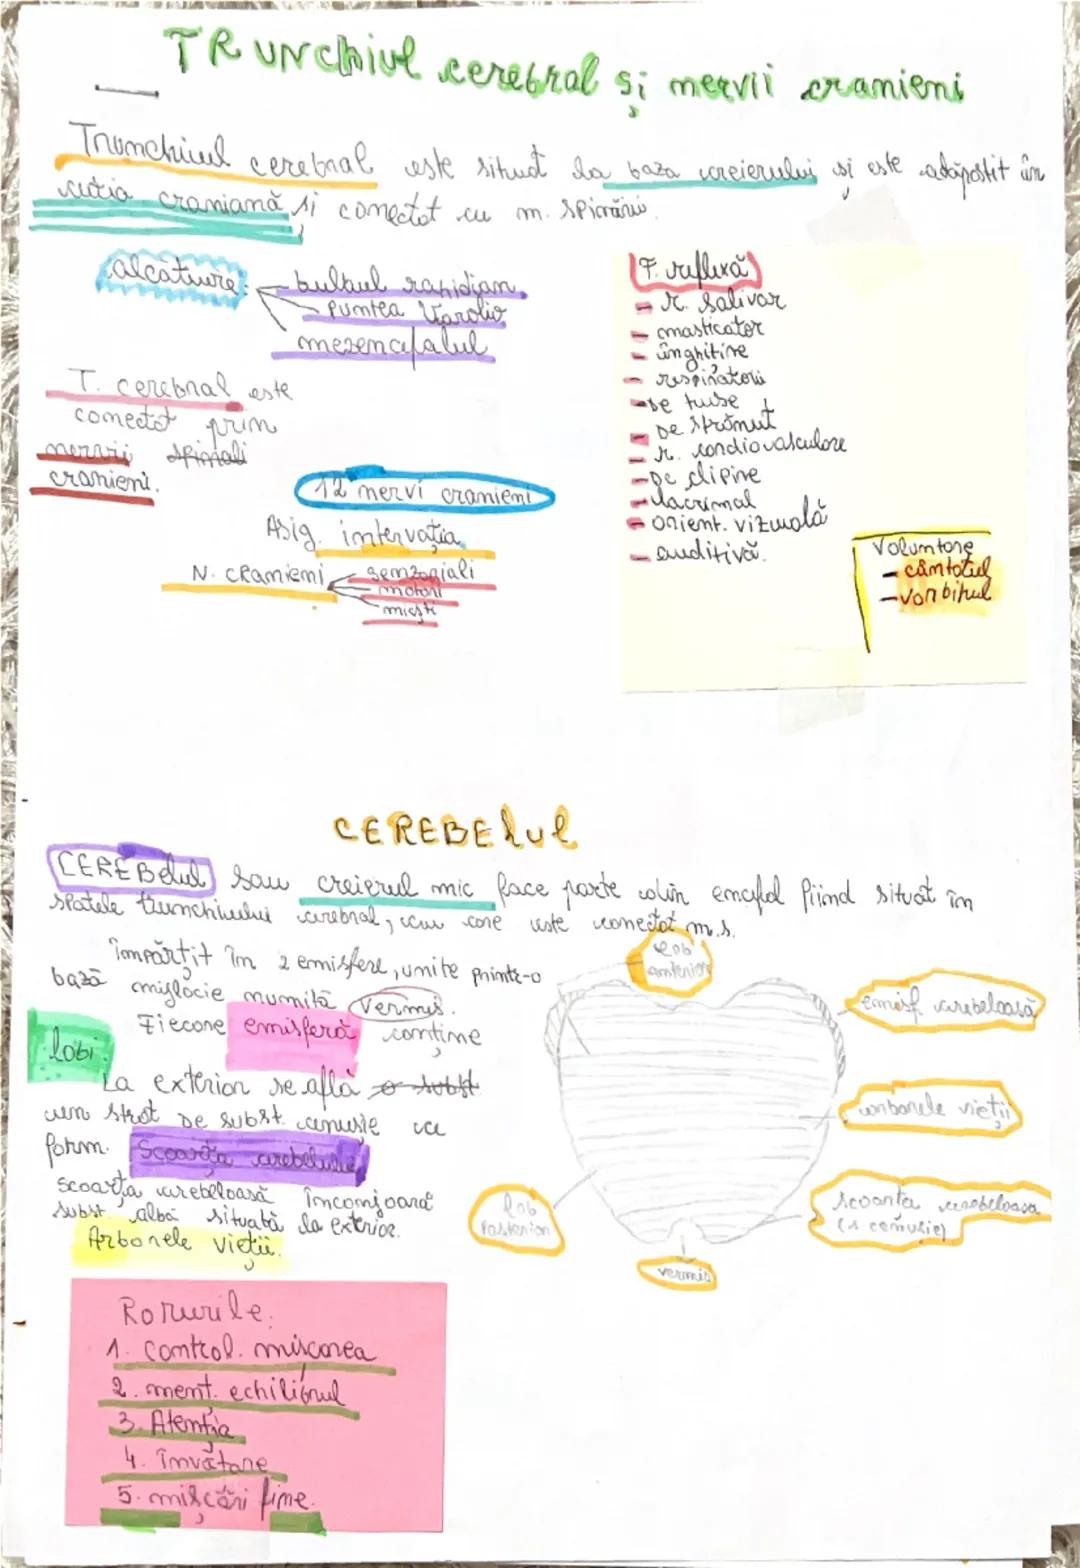 TRUNChiul cerebral și nervii cranieni
Trunchiul cerebral este situat la baza creierului și este adăpostit în
cutia craniană și conectat cu m. spinării.
alcătuire:
bulbul rahidian
Puntea Varolio
mezencefalul
T. cerebral este
conectat prin
nervii spinali
cranieni.
12 nervi cranieni
Asig. inervația
N. CRanieni
senzoriali
motori
micști
F. reflexă
- r. salivar
- masticator
- înghițire
- respiratorii
- de tuse
- De strănut
- r. cardiovasculare
- De clipire
- lacrimal
- orient. vizuală
- auditivă.
Voluntare
- cântatul
- vorbitul
CEREBElul
CEREBelul sau creierul mic face parte din encefal fiind situat în
spatele trunchiului cerebral, cu care este conectat m.s.
împărțit în 2 emisfere, unite printr-o
bază mijlocie numită Vermis.
Fiecare emisferă conține
lobi.
La exterior se află o subst
un strat De subst. cenușie ce
form. Scoarța cerebelului
scoarța cerebeloasă înconjoară
subst. albă situată la exterior.
Arborele vieții.
lob
anterior
emisf. cerebeloasă
arborele vieții
scoarța cerebeloasa
(s cenușie)
lob
Posterior
vermis
Rolurile:
1. Control. mișcarea
2. ment. echilibrul
3. Atenția
4. învățare
5. mișcări fine.